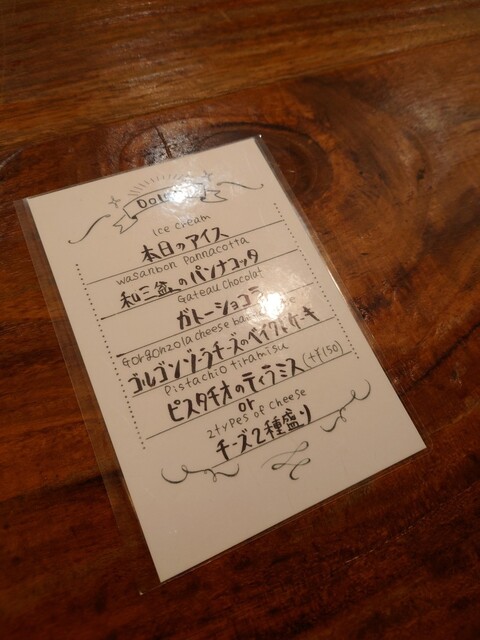 Ice cream
本日のアイス
wasanbon Pannacotta
和三盆のパンナコッタ
Gateau Chocolat
ガトーショコラ
Gorgonzola cheese
ゴルゴンゾーラチーズのベイクドケーキ
Pistachio tiramisu
ピスタチオのティラミス (+¥150)
or
2types of cheese
チーズ2種盛り